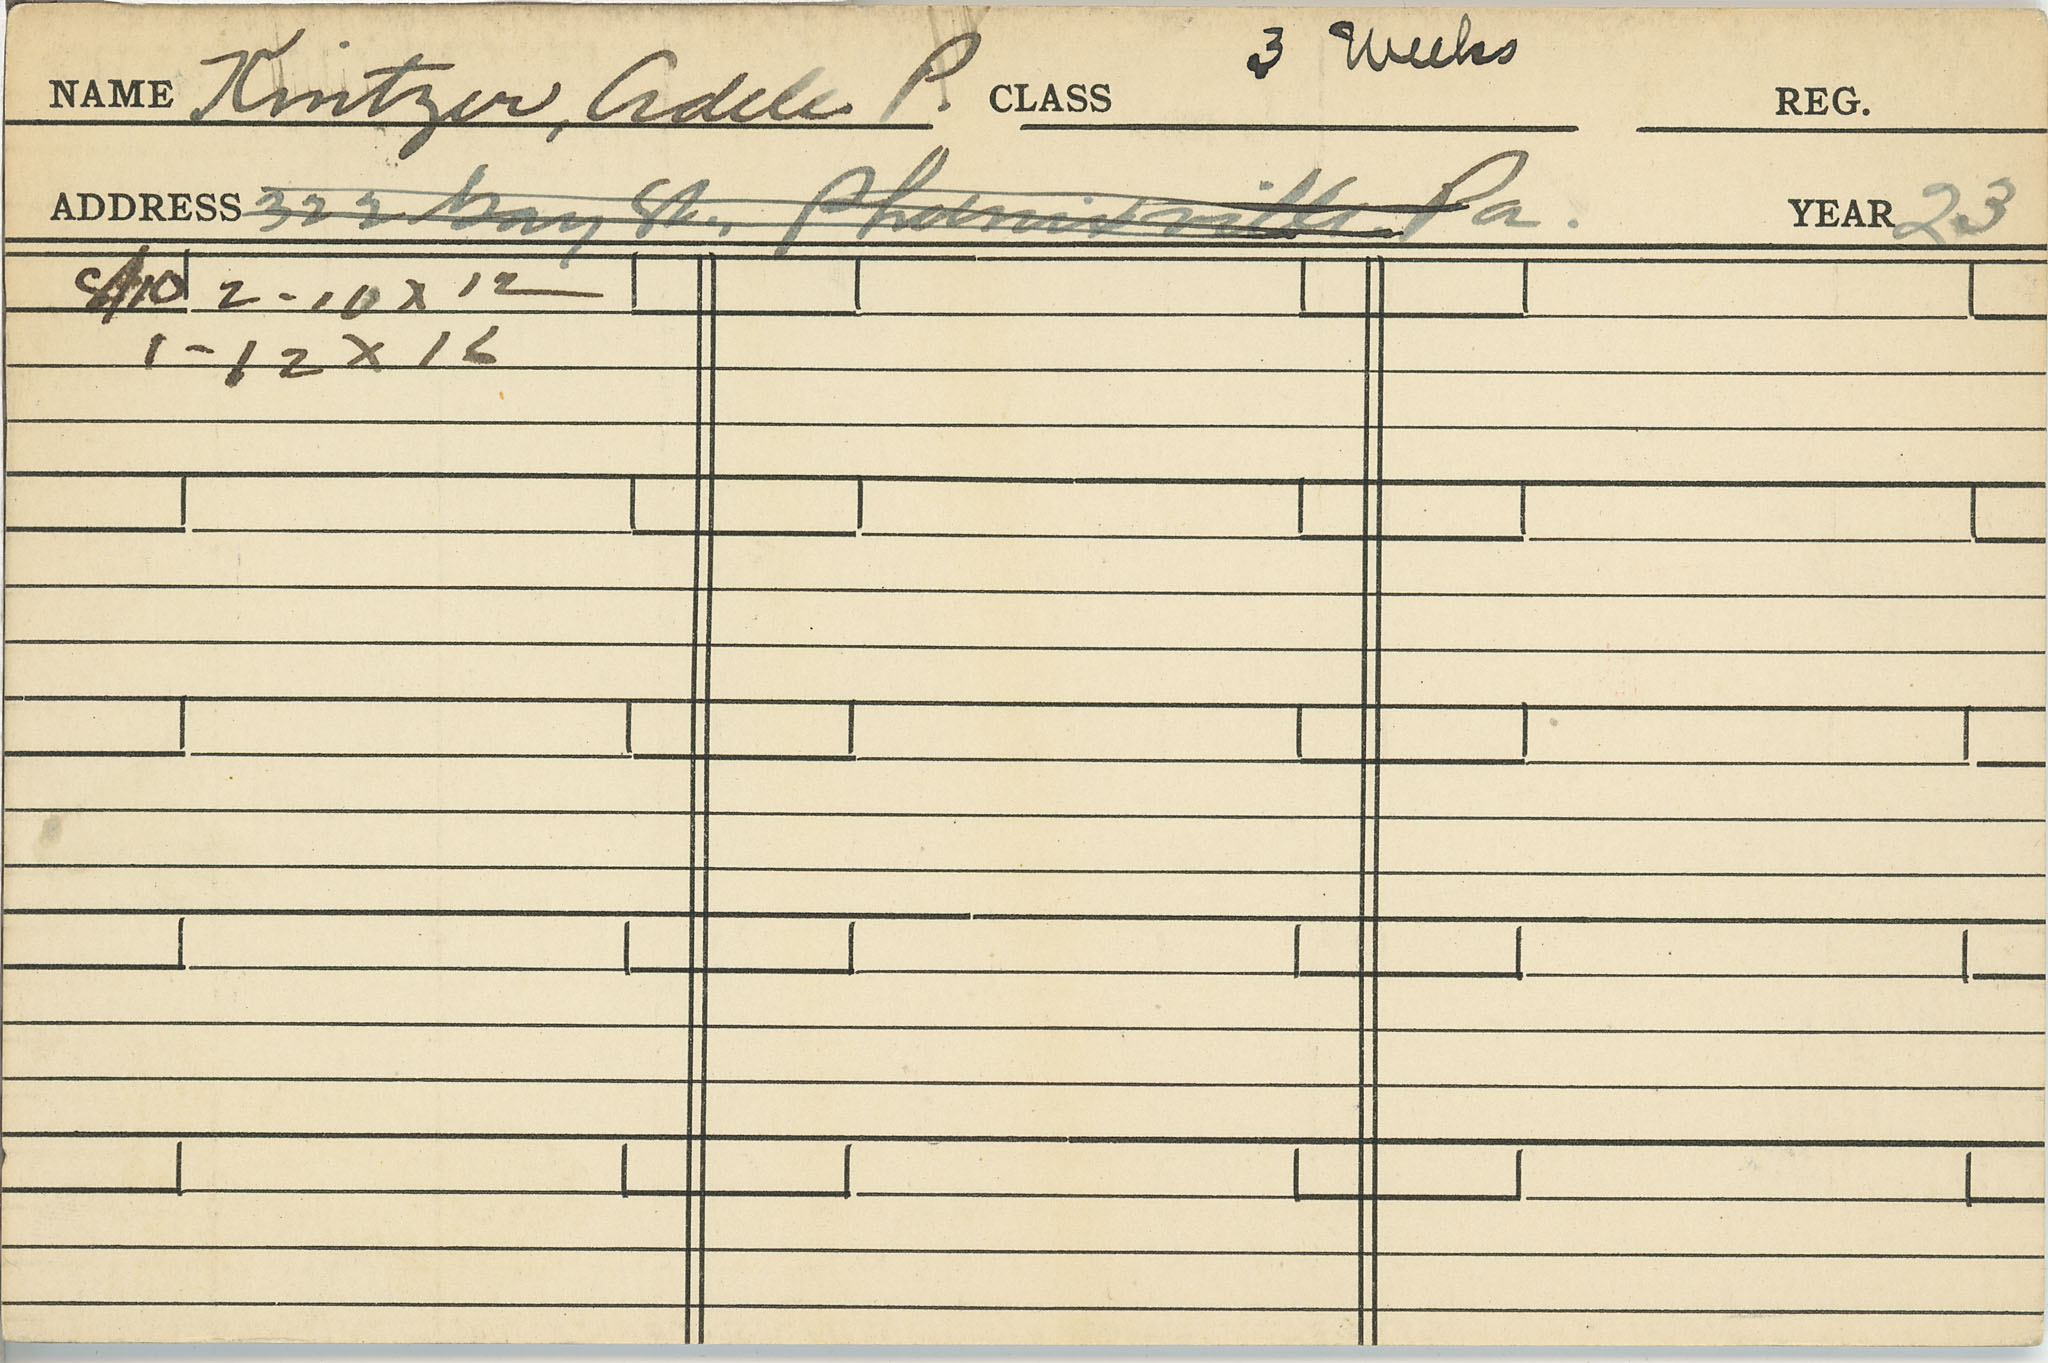 NAME Kintzer, Adele P. CLASS 3 Weeks REG.
ADDRESS 322 Gay St., Phoenixville Pa. YEAR 23
8/10 2-10 x 12
1-12 x 16